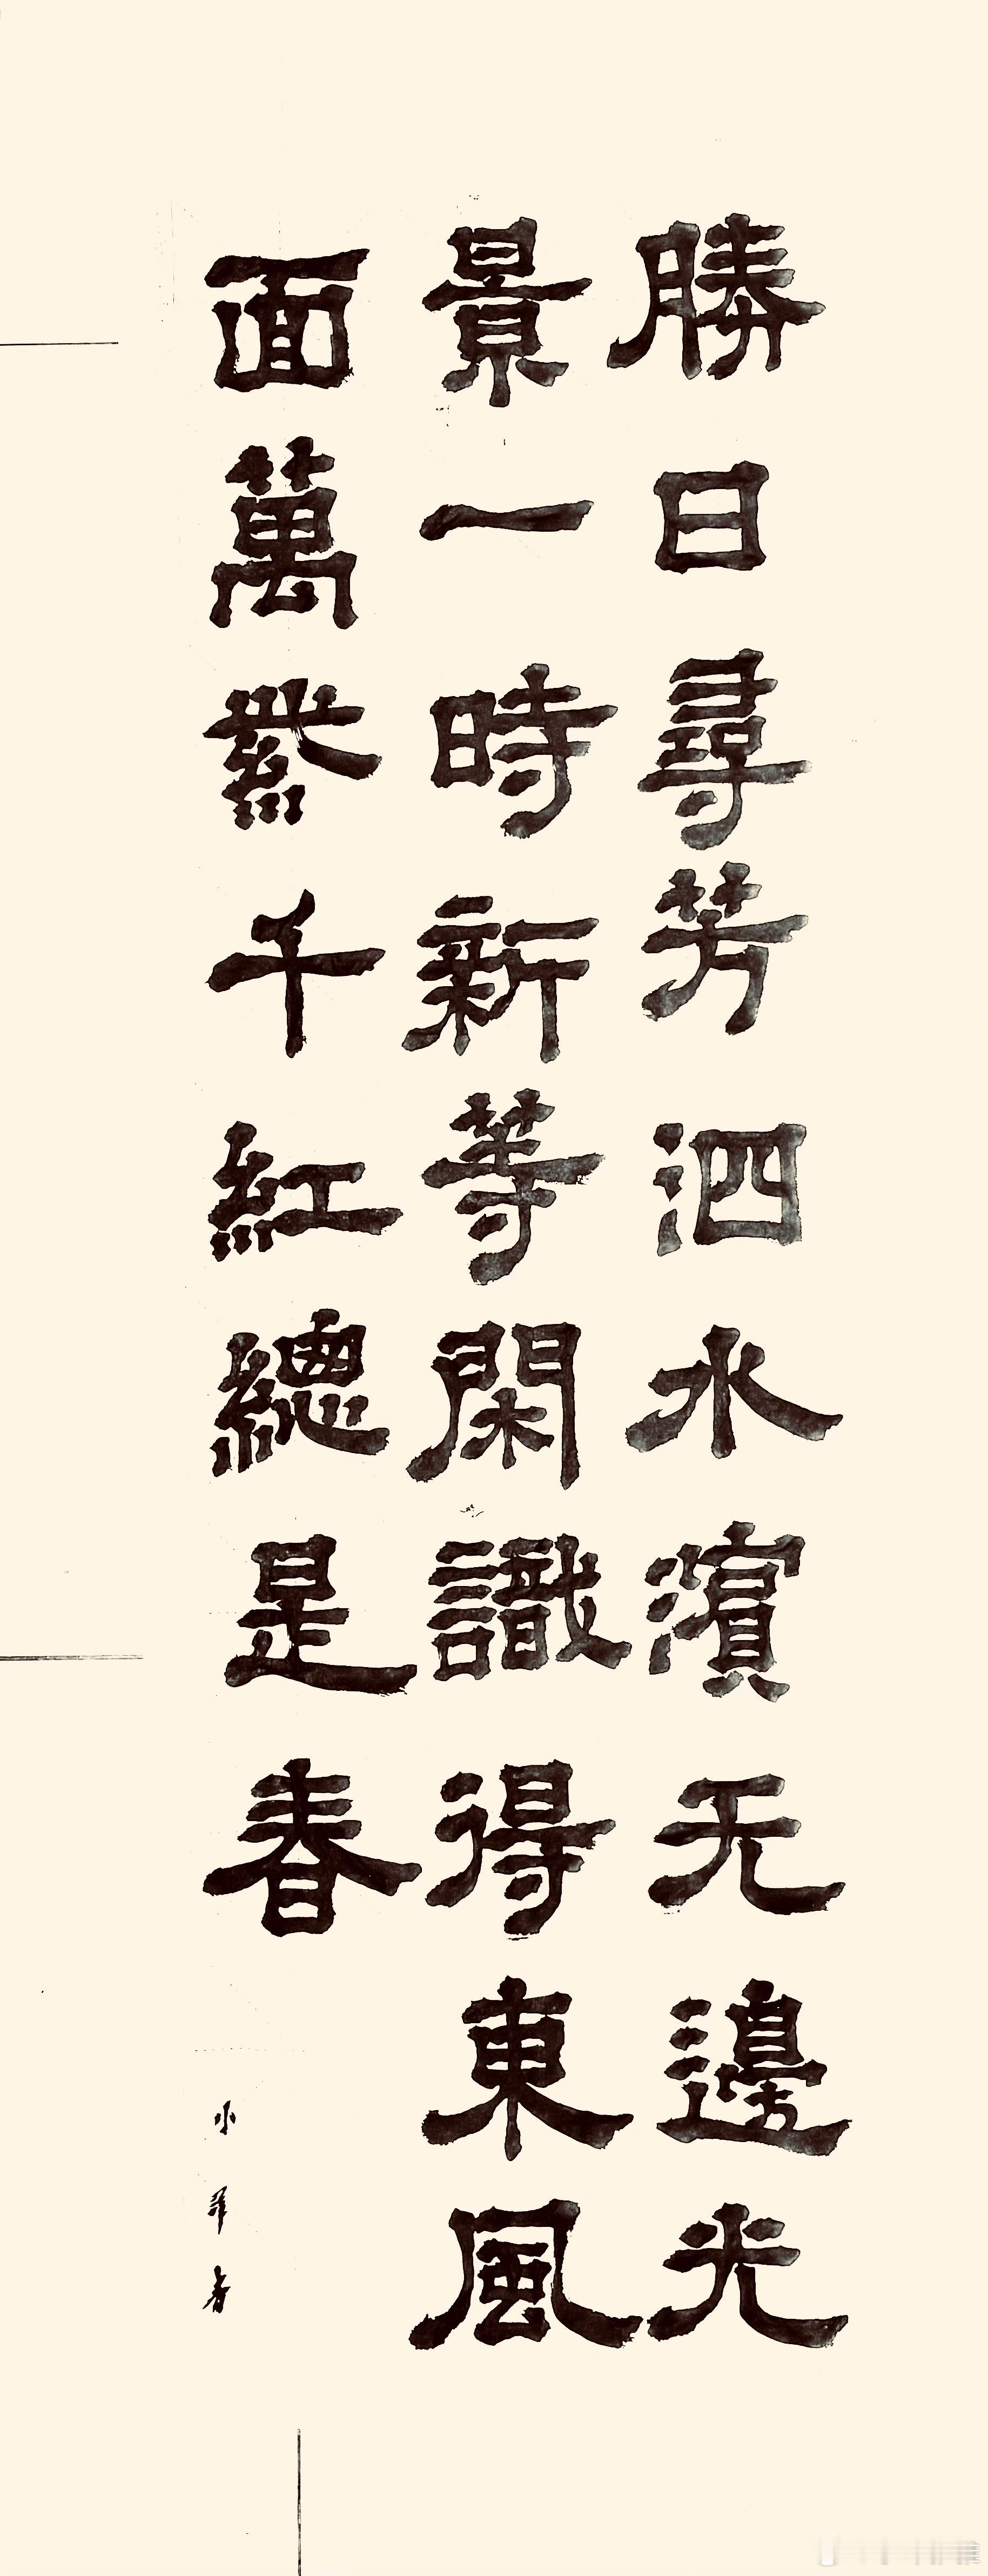 勝日尋芳泗水濱无邊光
景一時新等閑識得東風
面萬紫千紅總是春
小羊書